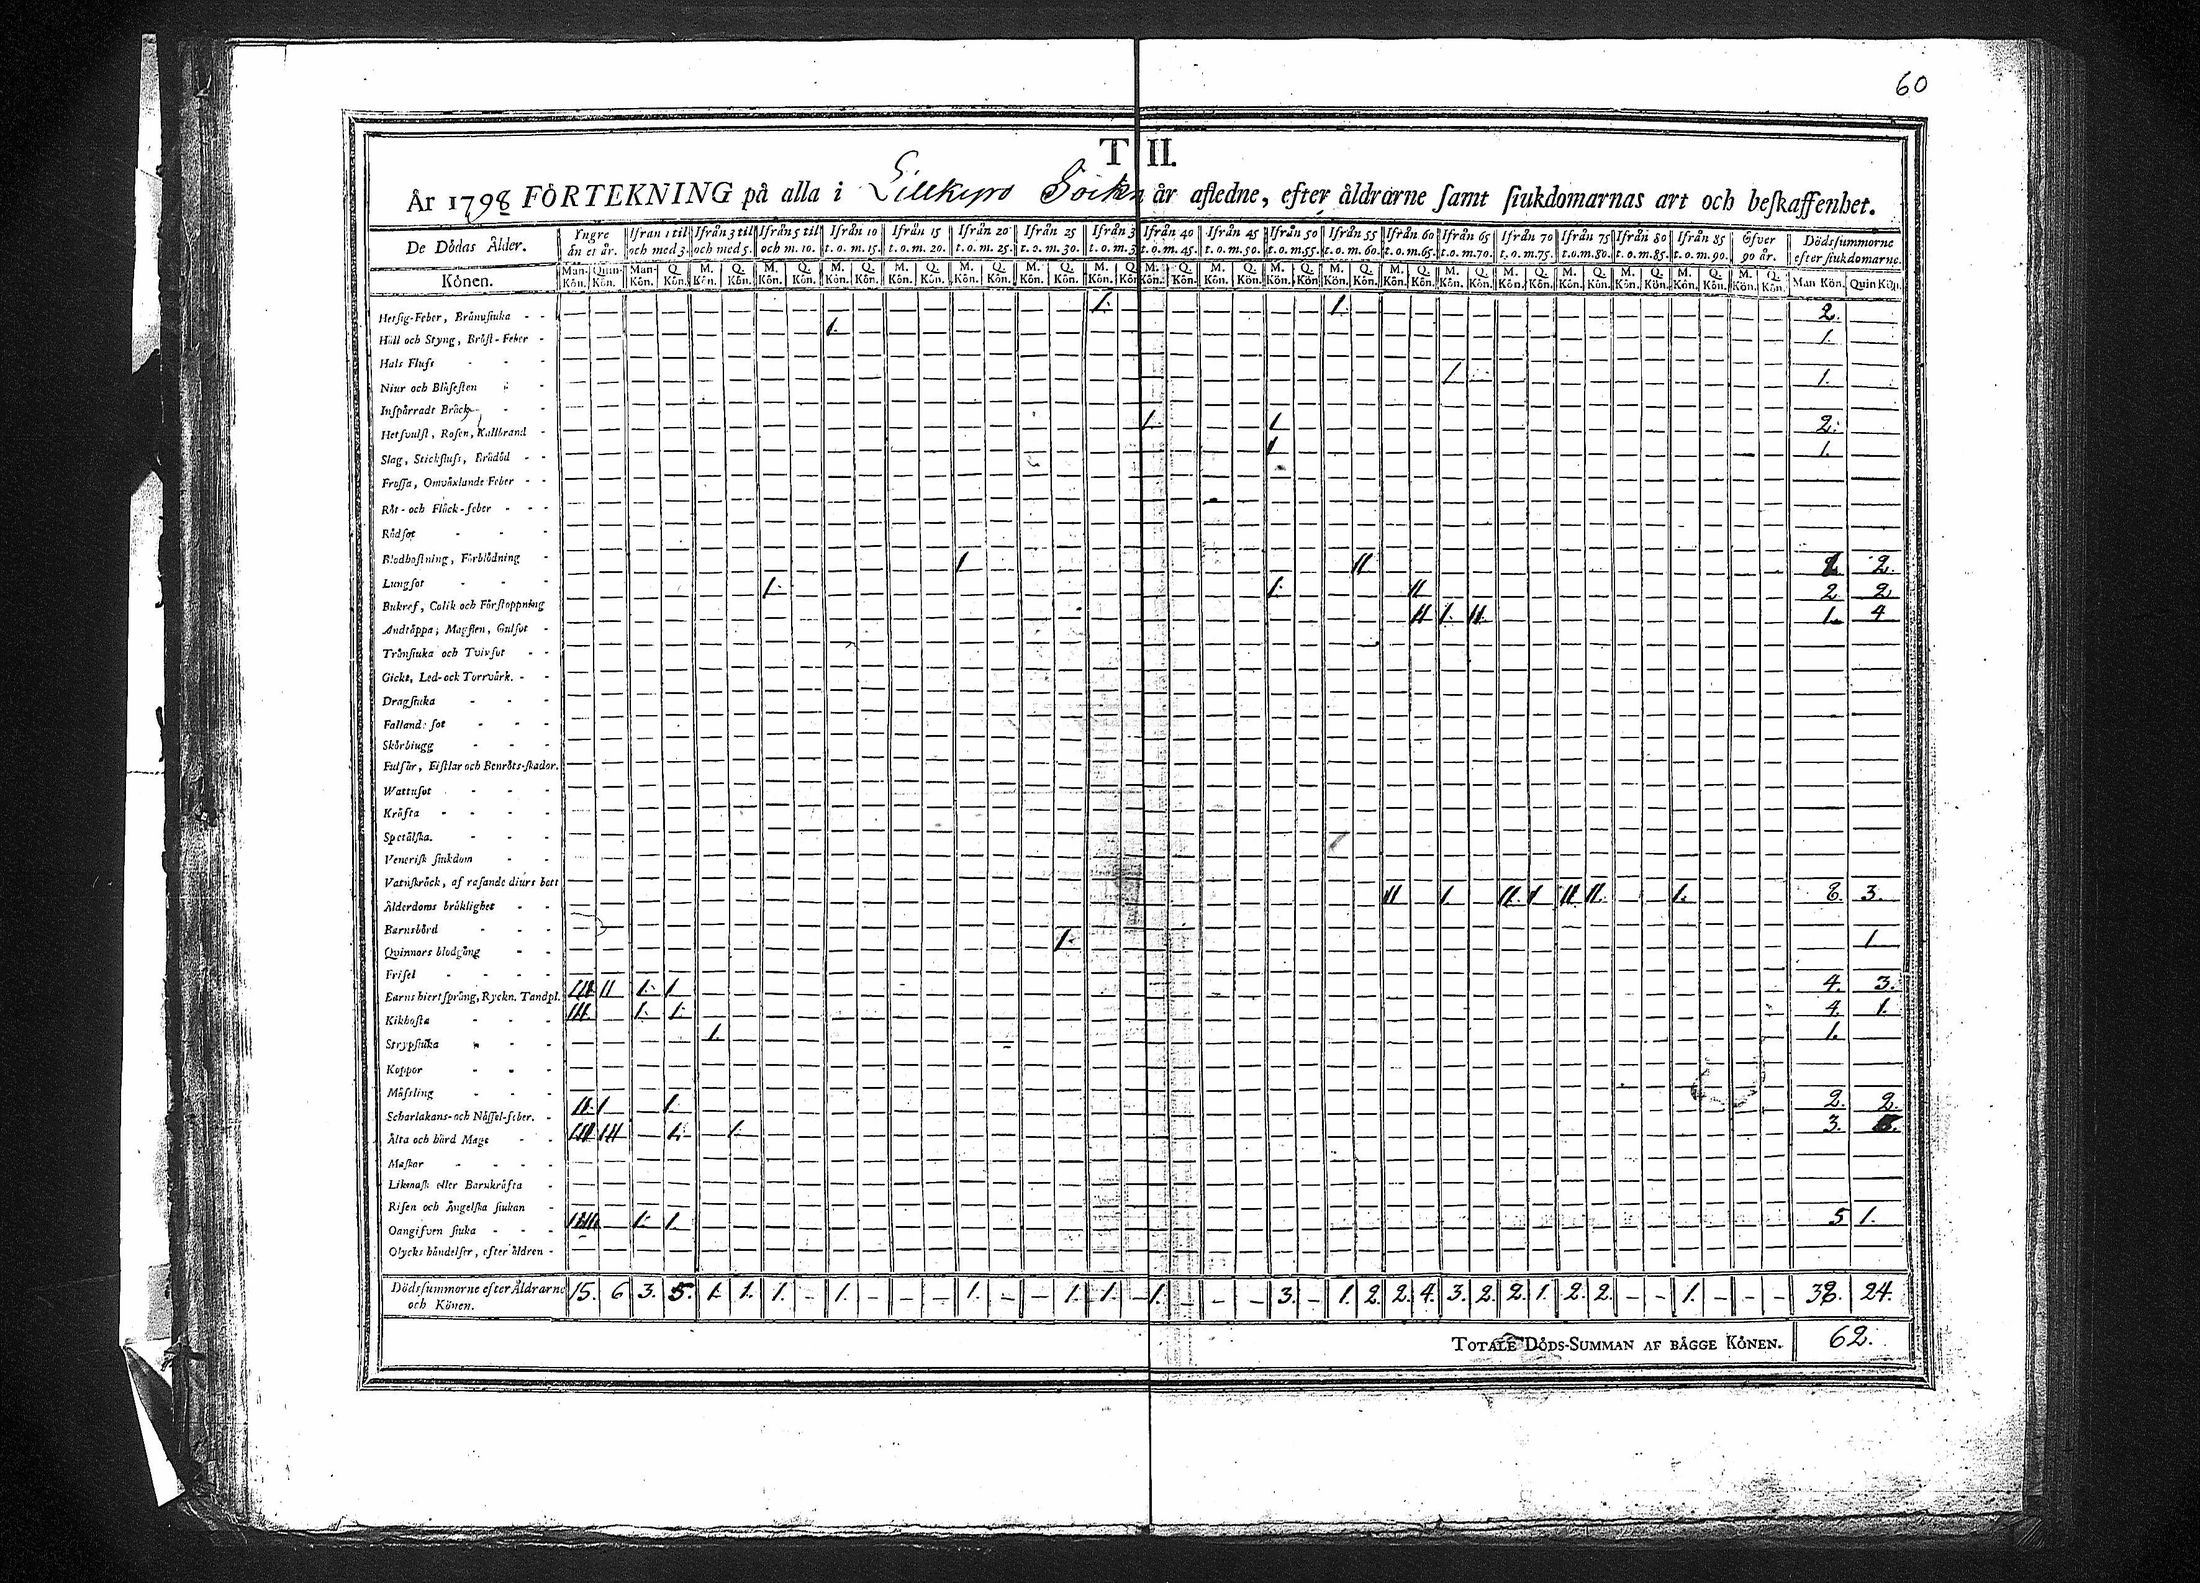 60
T II.
År 1798 FÖRTEKNING på alla i Lillkyro Soikn år afledne, efter åldrarne samt siukdomarnas art och beskaffenhet.
De Dödas Ålder. Yngre än et år. Ifrån 1 til och med 3. Ifrån 3 til och med 5. Ifrån 5 til och m. 10. Ifrån 10 t. o. m. 15. Ifrån 15 t. o. m. 20. Ifrån 20 t. o. m. 25. Ifrån 25 t. o. m. 30. Ifrån 3 t. o. m. 3 Ifrån 40 t. o. m. 45. Ifrån 45 t. o. m. 50. Ifrån 50 t. o. m. 55. Ifrån 55 t. o. m. 60. Ifrån 60 t. o. m. 65. Ifrån 65 t. o. m. 70. Ifrån 70 t. o. m. 75. Ifrån 75 t. o. m. 80. Ifrån 80 t. o. m. 85. Ifrån 85 t. o. m. 90. Öfver 90 år. Dödssummorne efter siukdomarne.
Könen. Man-Kön. Quin-Kön. Man-Kön. Q. Kön. M. Kön. Q. Kön. M. Kön. Q. Kön. M. Kön. Q. Kön. M. Kön. Q. Kön. M. Kön. Q. Kön. M. Kön. Q. Kön. M. Kön. Q. Kön. M. Kön. Q. Kön. M. Kön. Q. Kön. M. Kön. Q. Kön. M. Kön. Q. Kön. M. Kön. Q. Kön. M. Kön. Q. Kön. M. Kön. Q. Kön. M. Kön. Q. Kön. M. Kön. Q. Kön. M. Kön. Q. Kön. M. Kön. Q. Kön. Man Kön. Quin Kön.
Hetsig-Feber, Brännsiuka - - 1. 1. 2.
Håll och Styng, Bröst-Feber - 1. 1.
Hals Fluss - - -
Niur och Blåsesten - - 1. 1.
Inspärradt Bråck - -
Hetsvulst, Rosen, Kallbrand - 1. 1 2.
Slag, Stickfluss, Brådöd - - 1 1.
Frossa, Omväxlande Feber - -
Röt- och Fläck-feber - - -
Rödsot - - -
Blodhostning, Förblödning -
Lungsot - - - 1 II 2.
Bukref, Colik och Förstoppning 1. 1. II 2 2
Andtäppa, Magsten, Gulsot - II 1. II. 1. 4
Trånsiuka och Tvinsot - -
Gickt, Led- och Torrvärk. - -
Dragsiuka - - -
Fallandesot - - -
Skörbiugg - - -
Fulsår, Fistlar och Benröts-skador.
Wattusot - - -
Kräfta - - - -
Spetälska. - - -
Venerisk siukdom - -
Vatnskräck, af rasande diurs bett
Ålderdoms bräklighet - - II 1. II. 1 II II. 1. 8. 3.
Barnsbörd - - -
Quinnors blodgång - - 1. 1
Frisel - - - -
Barns hiertsprång, Ryckn. Tandpl. III II 1. 1 4. 3.
Kikhosta - - - III. 1. 1. 4. 1.
Strypsiuka - - - 1. 1.
Koppor - - -
Mässling - - -
Scharlakans- och Nässel-feber. - II. 1 1. 2. 2.
Ålta och hård Mage - - III III 1. 1. 3. 5.
Maskar - - - -
Likmask eller Barnkräfta -
Risen och Ängelska siukan -
Oangifven siuka - - - IIII. 1. 1. 5 1.
Olycks händelser, efter åldren -
Dödssummorne efter Åldrarne och Könen. 15. 6 3. 5. 1. 1. 1. - 1. - - - 1. - - 1. 1. - 1. - - - 3. - 1. 2. 2. 4. 3. 2. 2. 1. 2. 2. - - 1. - - - 38. 24.
TOTALE DÖDS-SUMMAN AF BÄGGE KÖNEN. 62.